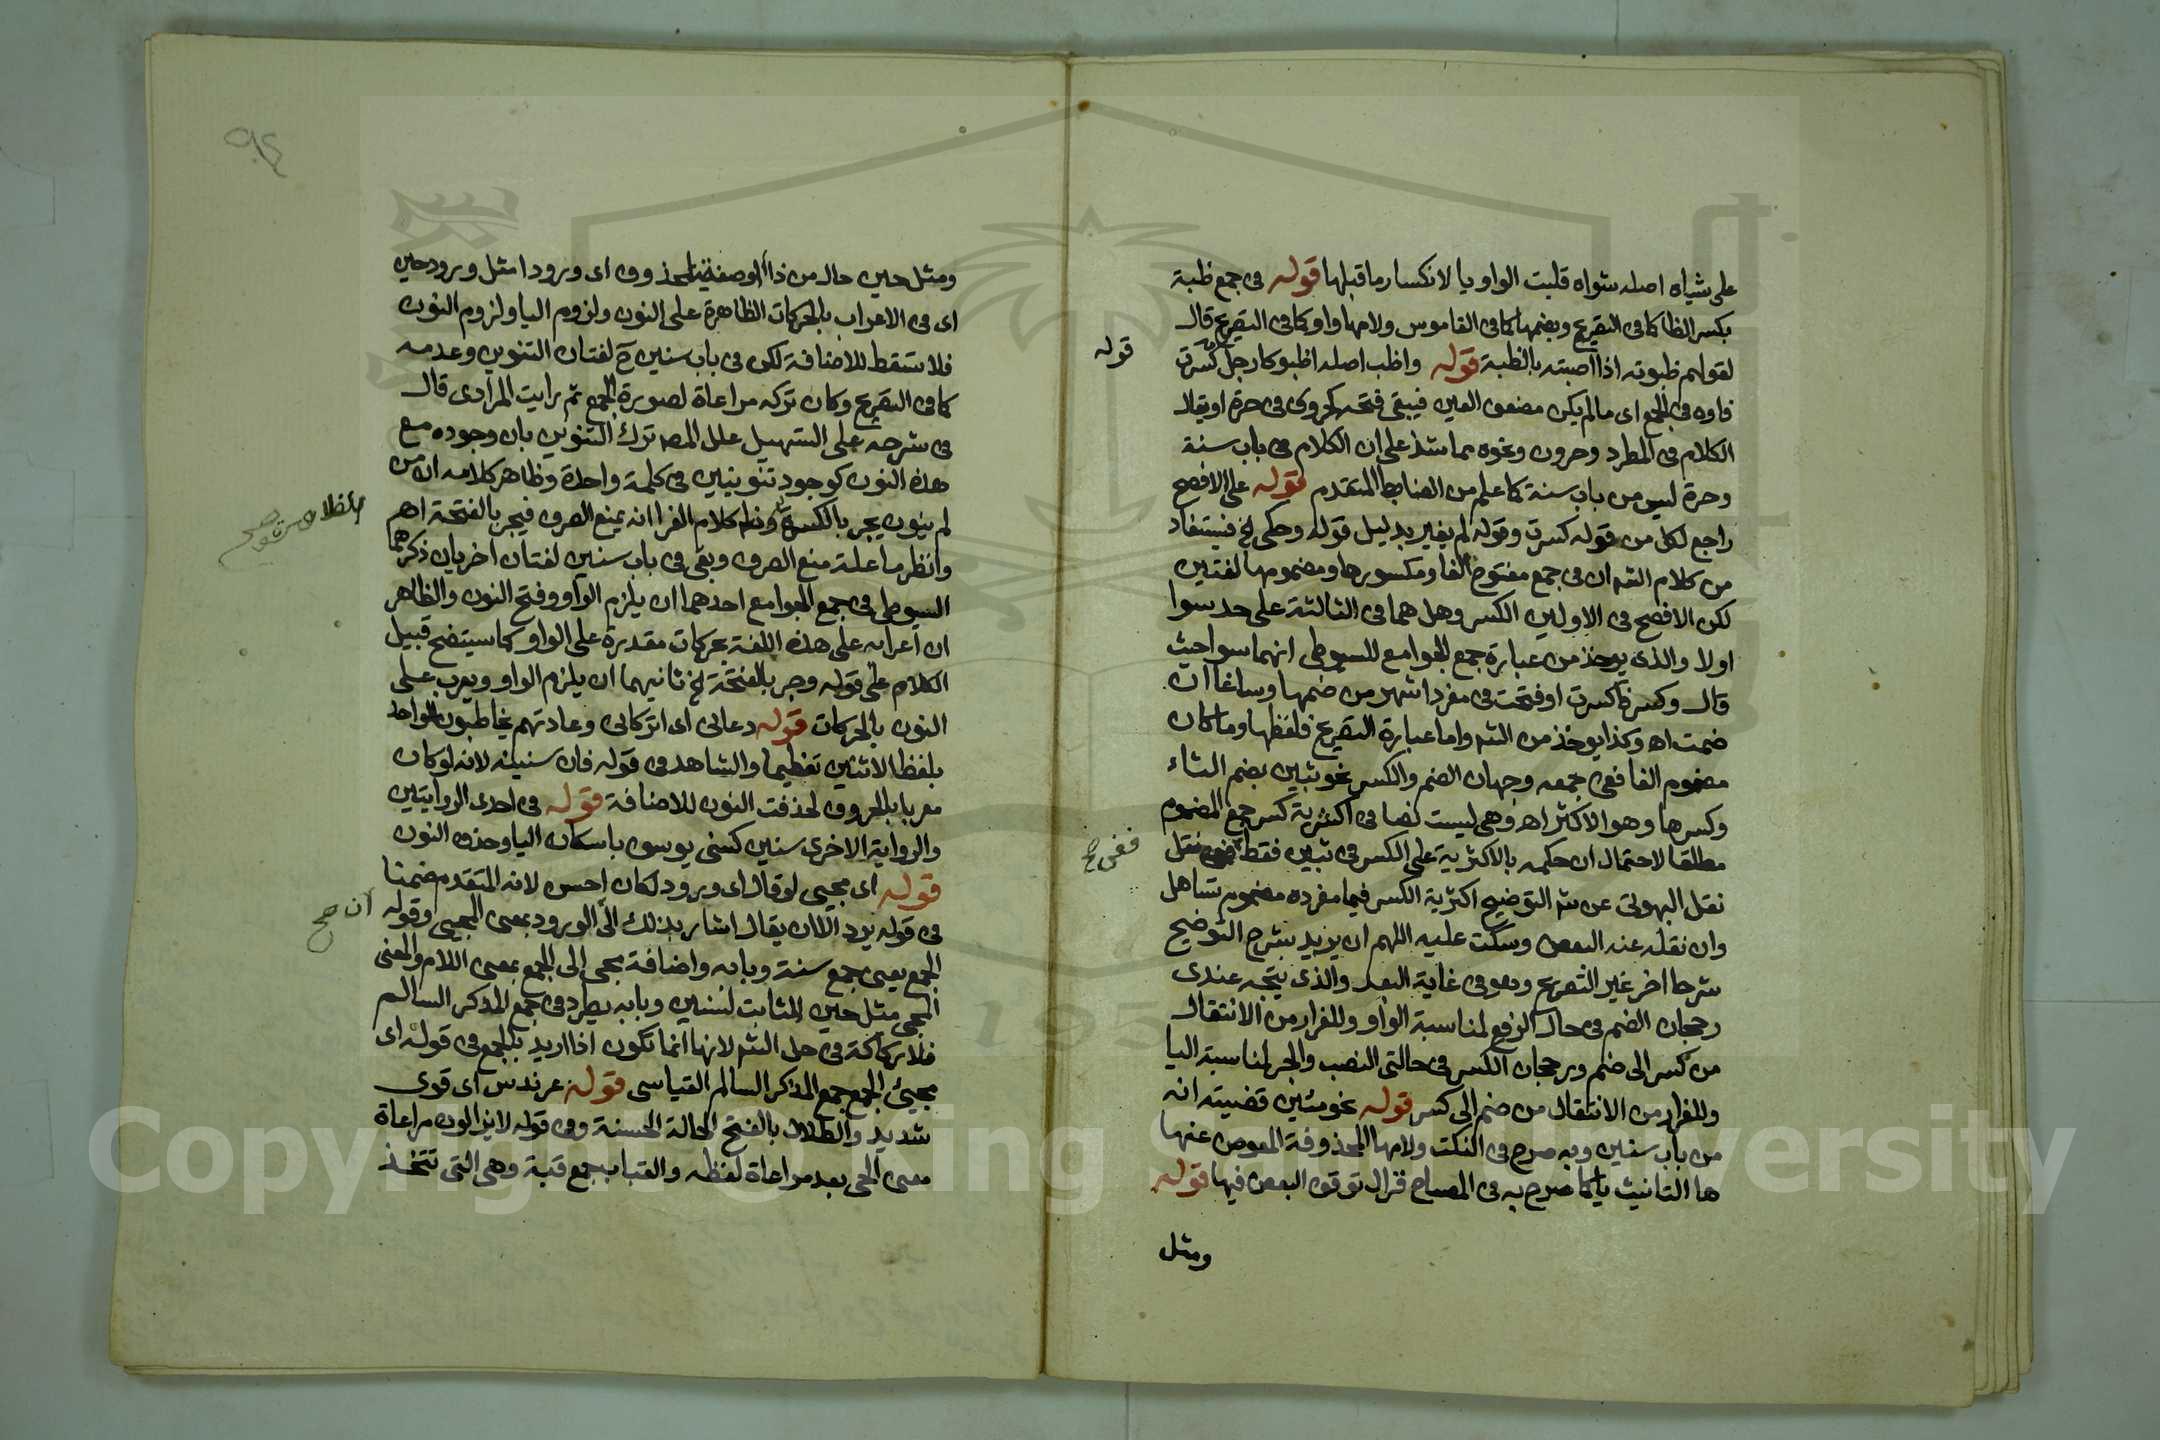 على شياه اصله شواه قلبت الواو يا لانكسار ما قبلها قوله في جمع ظبة
بكسر الظا كما في التصريح وبضمها كما في القاموس ولامها واو كما في التصريح قال
لقولهم ظبوته اذا اصبته بالظبة قوله واظب اصله اظبو كارجل كسرت
قوله
فاوه في الجمع اى ما لم يكن مضعف العين فيبقى فتحه كحرون في حرة او يقال
الكلام في المطرد وحرون ونحوه مما شذ على ان الكلام في باب سنة
وحرة ليس من باب سنة كما علم من الضابط المتقدم قوله على الافصح
راجع لكل من قوله كسرت وقوله لم يغير بدليل قوله وحكى الخ فيستفاد
من كلام الشم ان في جمع مفتوح الفا ومكسورها ومضمومها لغتين
لكن الافصح في الاولين الكسر وهل هما في الثالثة على حد سوا
اولا والذى يوخذ من عبارة جمع الجوامع للسيوطى انهما سوا حيث
قال وكسر فا كسرت او فتحت في مفرد اشهر من ضمها وساغا ان
ضمت اه وكذا يوخذ من الشم واما عبارة التصريح فلفظها وما كان
مضموم الفا ففى جمعه وجهان الضم والكسر نحو ثبين بضم الثاء
وكسرها وهو الاكثر اه وهى ليست نصا في اكثرية كسر جمع المضموم
مطلقا لاحتمال ان حكمه بالاكثرية على الكسر في ثبين فقط نقل
ففى صح
نقل البهوتى عن شم التوضيح اكثرية الكسر فيما مفرده مضموم تساهل
وان نقله عنه البعض وسكت عليه اللهم ان يريد بشرح التوضيح
شرحا اخر غير التصريح وهو في غاية البعد والذى يتجه عندى
رجحان الضم في حال الرفع لمناسبة الواو وللفرار من الانتقال
من كسر الى ضم ورجحان الكسر في حالتى النصب والجر لمناسبة اليا
وللفرار من الانتقال من ضم الى كسر قوله نحو مئين قضيته انه
من باب سنين وبه صرح في النكت ولامها المحذوفة المعوض عنها
ها التانيث يا كما صرح به في المصباح فزال توقف البعض فيها قوله
ومثل
٩٤
ومثل حين حال من ذا الوصفية لمحذوف اى ورودا مثل ورود حين
اى في الاعراب بالحركات الظاهرة على النون ولزوم اليا ولزوم النون
فلا تسقط للاضافة لكن في باب سنين ح لغتان التنوين وعدمه
كما في التصريح وكان تركه مراعاة لصورة الجمع ثم رايت المرادى قال
في شرحه على التسهيل علل المصـ ترك التنوين بان وجوده مع
هذه النون كوجود تنوينين في كلمة واحدة وظاهر كلامه ان من
لم ينون يجر بالكسرة كلام الفرا انه يمنع الصرف فيجر بالفتحة اهـ
وانظر ما علة منع الصرف وبقى في باب سنين لغتان اخريان ذكرهما
السيوطى في جمع الجوامع احدهما ان يلزم الواو وفتح النون والظاهر
ان اعرابه على هذه اللغة بحركات مقدرة على الواو كما سيتضح قبيل
الكلام على قوله وجر بالفتحة الخ ثانيهما ان يلزم الواو ويعرب على
النون بالحركات قوله دعانى اى اتركانى وعادتهم يخاطبون الواحد
بلفظ الاثنين تعظيما والشاهد في قوله فان سنينه لانه لو كان
معربا بالحروف لحذفت النون للاضافة قوله في احدى الروايتين
والرواية الاخرى سنين كسنى يوسف باسكان اليا وحذف النون
قوله اى مجيى لو قال اى ورود لكان احسن لانه المتقدم ضمنا
في قوله يرد الا ان يقال اشار بذلك الى الورود بمعنى المجيى وقوله
ان صح
الجمع يعنى جمع سنة وبابه واضافة مجى الى الجمع بمعنى اللام والمعنى
المجى مثل حين الثابت لسنين وبابه يطرد في جمع المذكر السالم
فلا ركاكة في حل الشم لانها انما تكون اذا اريد بالجمع في قوله اى
مجيئ الجمع جمع المذكر السالم القياسى قوله عرندس اى قوى
شديد والطلال بالفتح الحالة الحسنة وفى قوله لا يزالون مراعاة
معنى الحى بعد مراعاة لفظه والقباب جمع قبة وهى التى تتخذ
Copyright © King Saud University